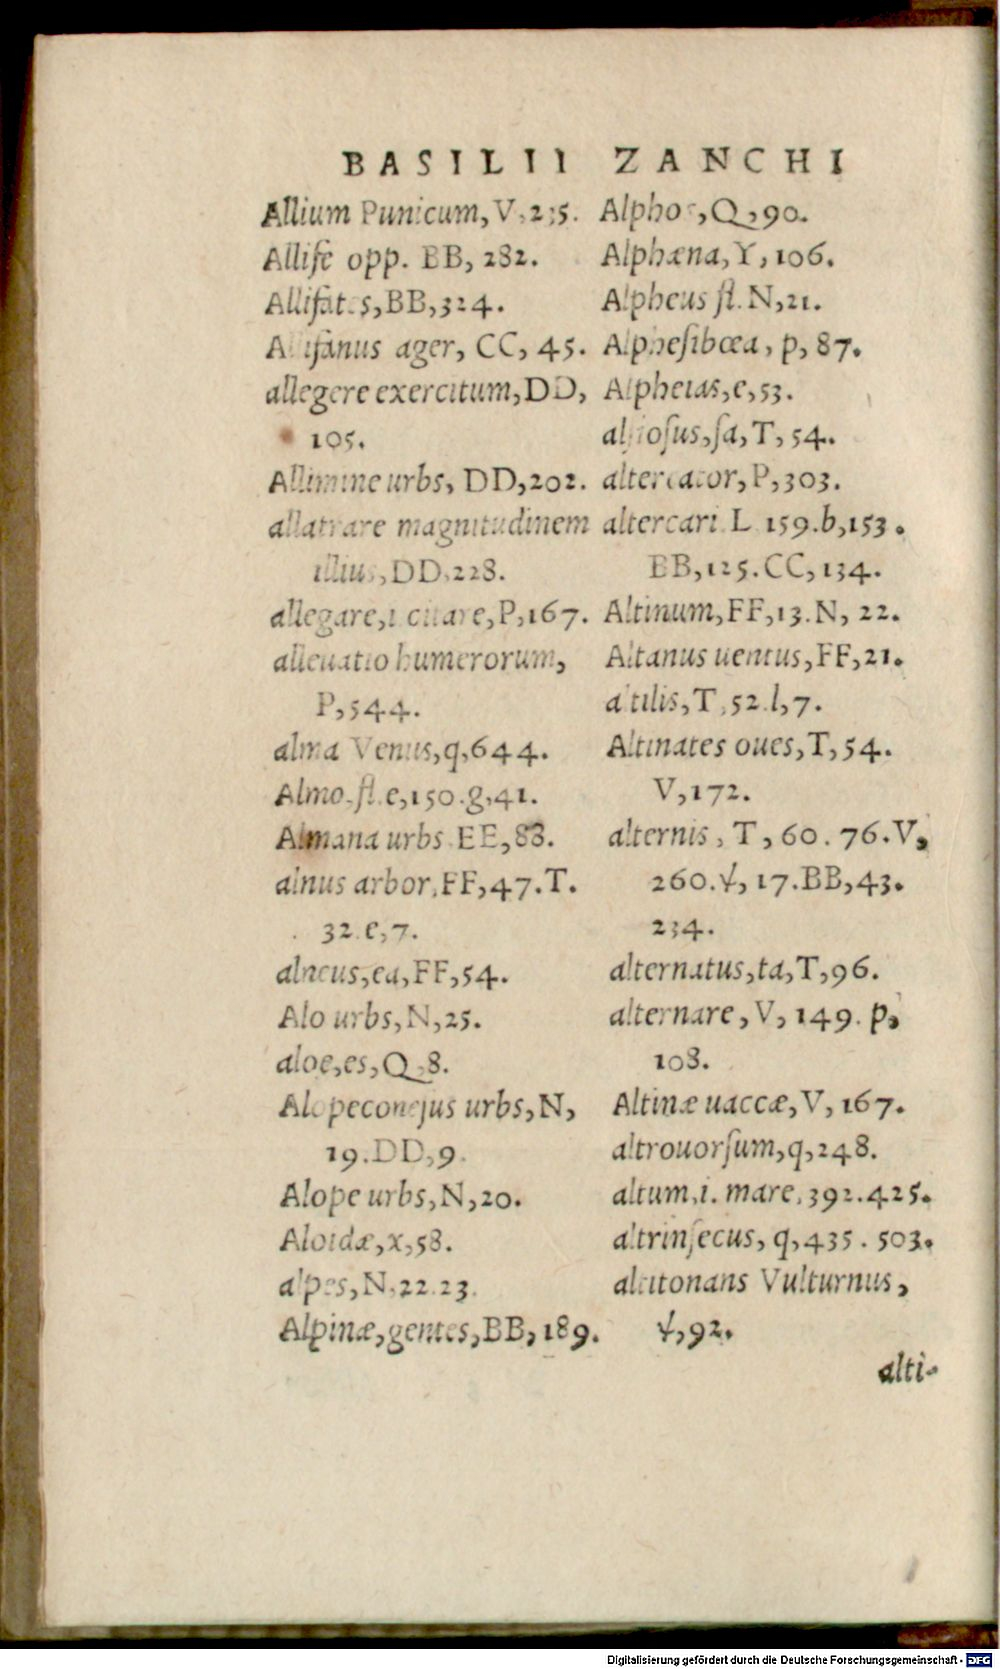 BASILII ZANCHI
Allium Punicum, V, 235.
Allifę opp. BB, 282.
Allifates, BB, 324.
Allifanus ager, CC, 45.
allegere exercitum, DD,
105.
Allimine urbs, DD, 202.
allatrare magnitudinem
illius, DD, 228.
allegare, i. citare, P, 167.
alleuatio humerorum,
P, 544.
alma Venus, q, 644.
Almo, fl. e, 150. g, 41.
Almana urbs. EE, 88.
alnus arbor, FF, 47. T.
32. e, 7.
alneus, ea, FF, 54.
Alo urbs, N, 25.
aloe, es, Q, 8.
Alopeconesus urbs, N,
19. DD, 9.
Alope urbs, N, 20.
Aloidæ, x, 58.
alpes, N, 22. 23.
Alpinæ, gentes, BB, 189.
Alphos, Q, 90.
Alphæna, Y, 106.
Alpheus fl. N, 21.
Alphesibœa, p, 87.
Alpheias, e, 53.
alsiosus, sa, T, 54.
altercator, P, 303.
altercari. L. 159. b, 153.
BB, 125. CC, 134.
Altinum, FF, 13. N, 22.
Altanus uentus, FF, 21.
altilis, T, 52. l, 7.
Altinates oues, T, 54.
V, 172.
alternis, T, 60. 76. V,
260. 17. BB, 43.
234.
alternatus, ta, T, 96.
alternare, V, 149. p,
108.
Altinæ uaccæ, V, 167.
altrouorsum, q, 248.
altum, i. mare, 392. 425.
altrinsecus, q, 435. 503.
altitonans Vulturnus,
92.
alti-
Digitalisierung gefördert durch die Deutsche Forschungsgemeinschaft - DFG